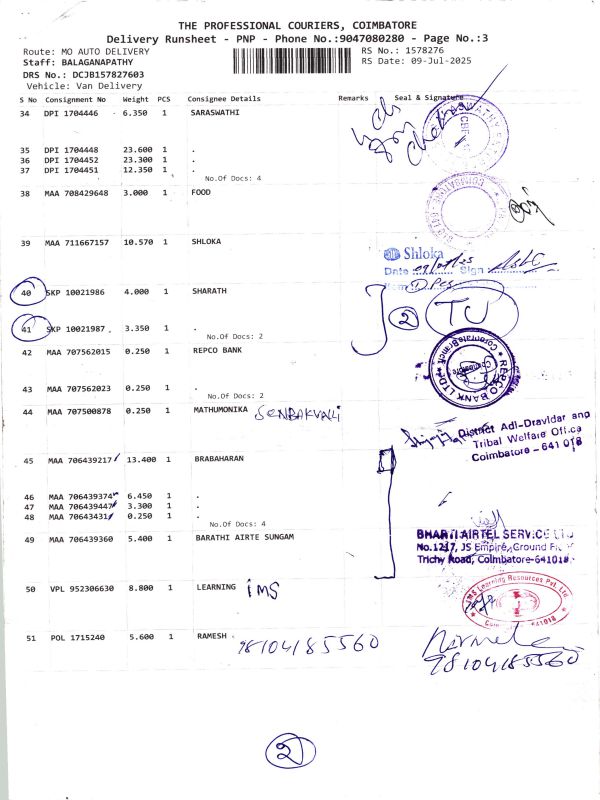 THE PROFESSIONAL COURIERS, COIMBATORE
Delivery Runsheet - PNP - Phone No.:9047080280 - Page No.:3
Route: MO AUTO DELIVERY
RS No.: 1578276
Staff: BALAGANAPATHY
RS Date: 09-Jul-2025
DRS No.: DCJB157827603
Vehicle: Van Delivery
S No Consignment No Weight PCS Consignee Details Remarks Seal & Signature
34 DPI 1704446 6.350 1 SARASWATHI
35 DPI 1704448 23.600 1 .
36 DPI 1704452 23.300 1 .
37 DPI 1704451 12.350 1 .
No.Of Docs: 4
38 MAA 708429648 3.000 1 FOOD
39 MAA 711667157 10.570 1 SHLOKA
Shloka
Date 09/07/25 Sign
40 SKP 10021986 4.000 1 SHARATH
2 TU
41 SKP 10021987 3.350 1 .
No.Of Docs: 2
42 MAA 707562015 0.250 1 REPCO BANK
REPCO BANK LTD
43 MAA 707562023 0.250 1 .
No.Of Docs: 2
44 MAA 707500878 0.250 1 MATHUMONIKA SENBAKVALI
District Adi-Dravidar and
Tribal Welfare Office
Coimbatore - 641 018
45 MAA 706439217 13.400 1 BRABAHARAN
46 MAA 706439374 6.450 1 .
47 MAA 706439447 3.300 1 .
48 MAA 70643431 0.250 1 .
No.Of Docs: 4
49 MAA 706439360 5.400 1 BARATHI AIRTE SUNGAM
BHARTI AIRTEL SERVICE LTD
No.1217, JS Empire, Ground Fl
Trichy Road, Coimbatore-641018
50 VPL 952306630 8.800 1 LEARNING IMS
IMS Learning Resources Pvt. Ltd.
641018
51 POL 1715240 5.600 1 RAMESH 98104185560
Nirmala
98104185560
2